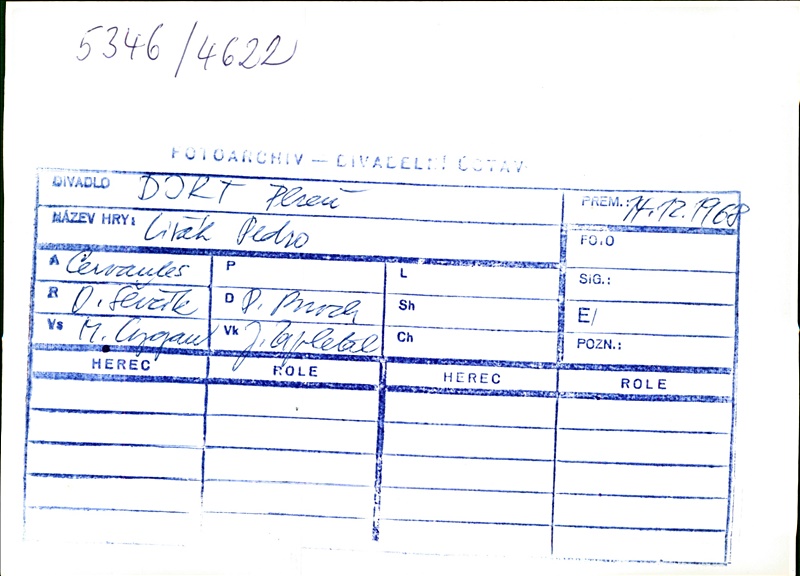 5346/4622
FOTOARCHIV — DIVADELNÍ ÚSTAV
DIVADLO DJKT Plzeň PREM.: 14.12.1968
NÁZEV HRY: Lišák Pedro FOTO
A Cervantes P L SIG.:
R O. Ševčík D P. Sh E/
Vs M. Cygan Vk J. Ch POZN.:
HEREC ROLE HEREC ROLE